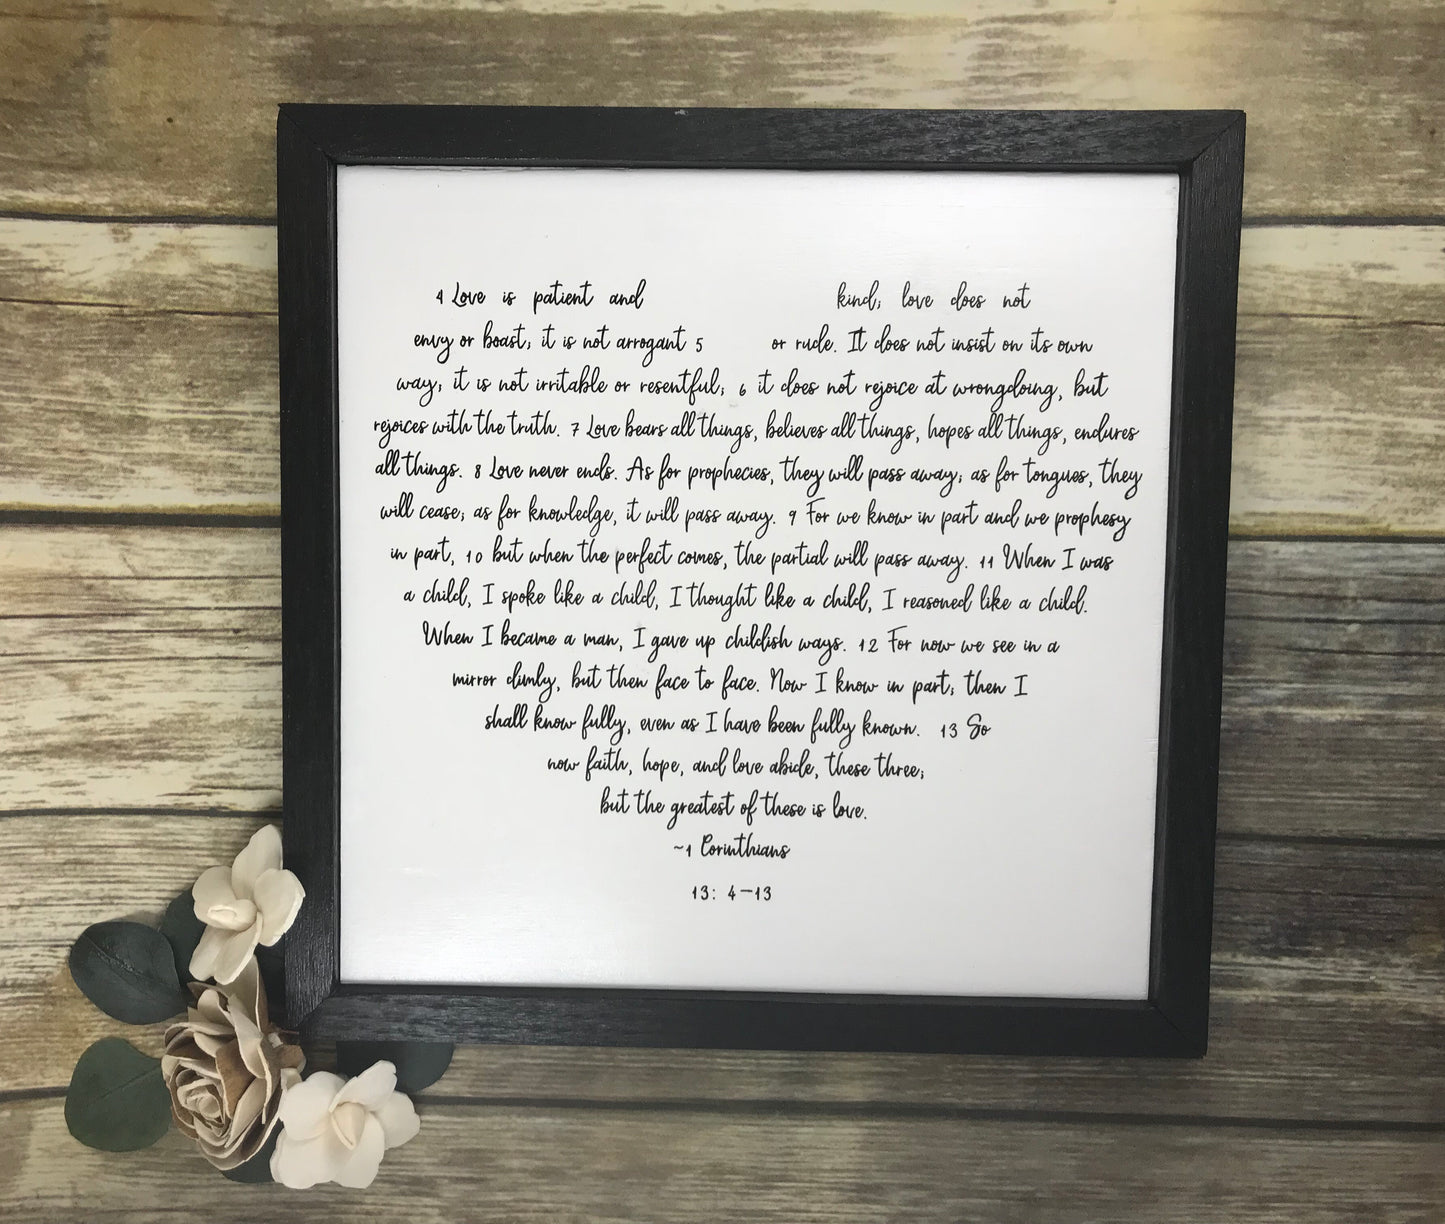 4 Love is patient and kind; love does not
envy or boast; it is not arrogant 5 or rude. It does not insist on its own
way; it is not irritable or resentful; 6 it does not rejoice at wrongdoing, but
rejoices with the truth. 7 Love bears all things, believes all things, hopes all things, endures
all things. 8 Love never ends. As for prophecies, they will pass away; as for tongues, they
will cease; as for knowledge, it will pass away. 9 For we know in part and we prophesy
in part, 10 but when the perfect comes, the partial will pass away. 11 When I was
a child, I spoke like a child, I thought like a child, I reasoned like a child.
When I became a man, I gave up childish ways. 12 For now we see in a
mirror dimly, but then face to face. Now I know in part; then I
shall know fully, even as I have been fully known. 13 So
now faith, hope, and love abide, these three;
but the greatest of these is love.
~1 Corinthians
13: 4-13